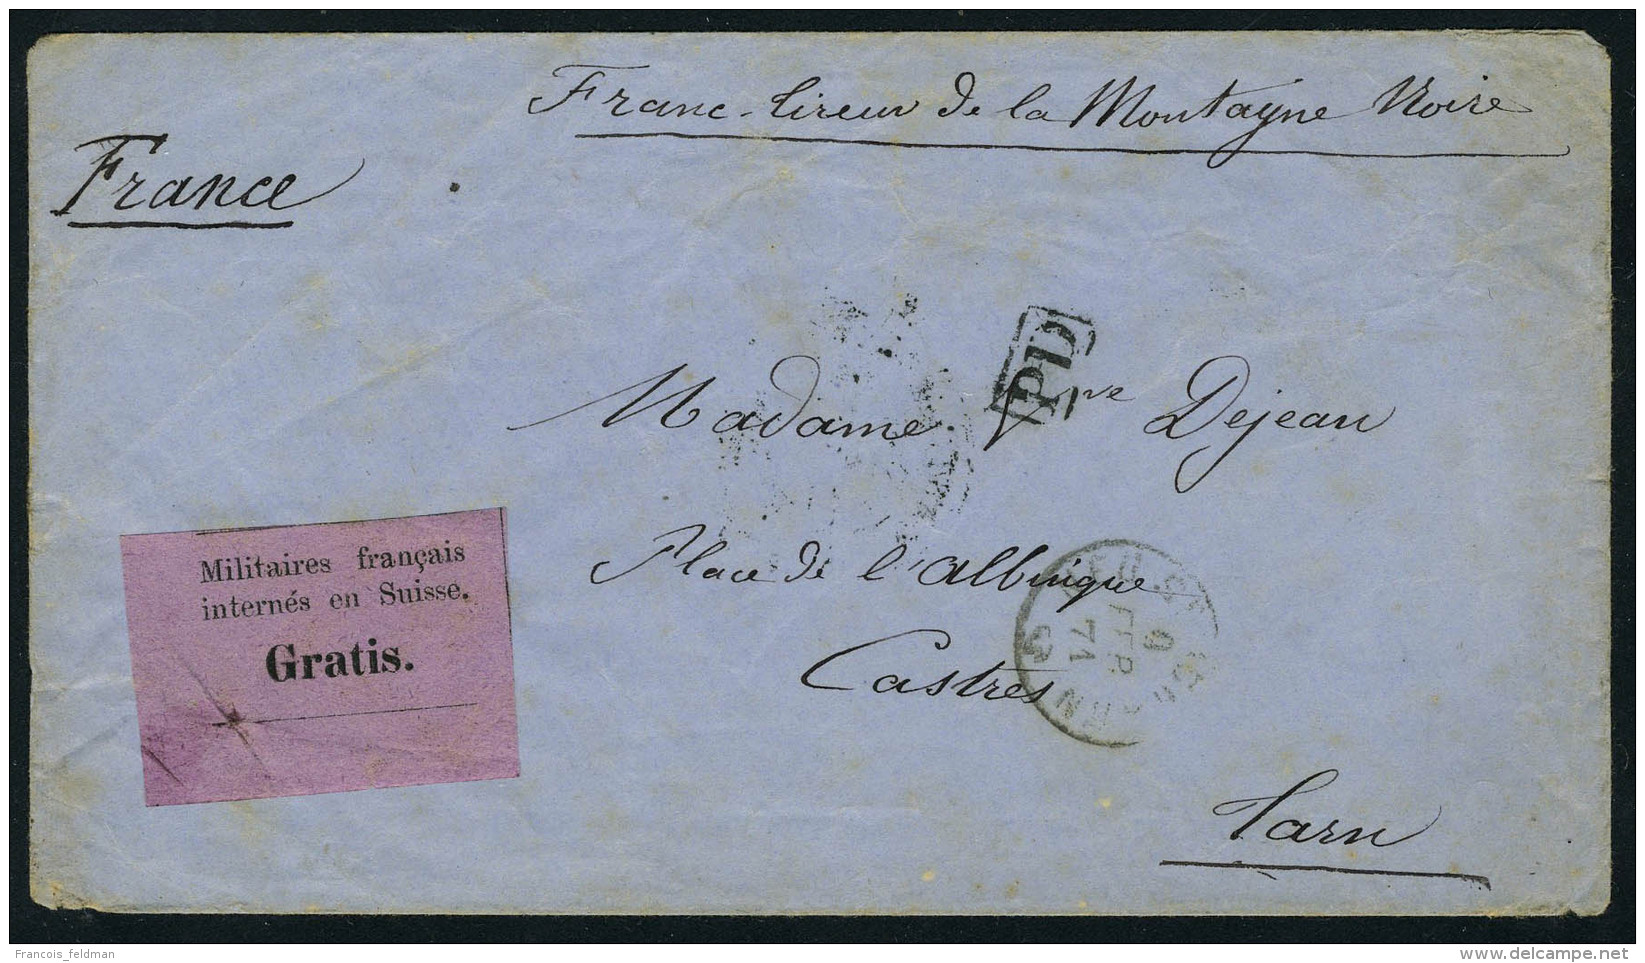 Franc-tireur de la Montagne Noire
France
PD
Madame Vve Dejean
Place de l'albinque
Castres
Tarn
Militaires français
internés en Suisse.
Gratis.
FEVR.
71
Francois_feldman
www.delcampe.net